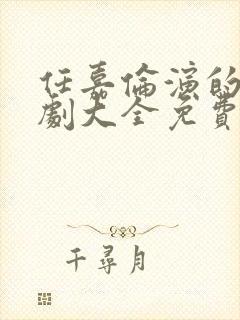 任嘉倫演的
劇大全免費
千尋月